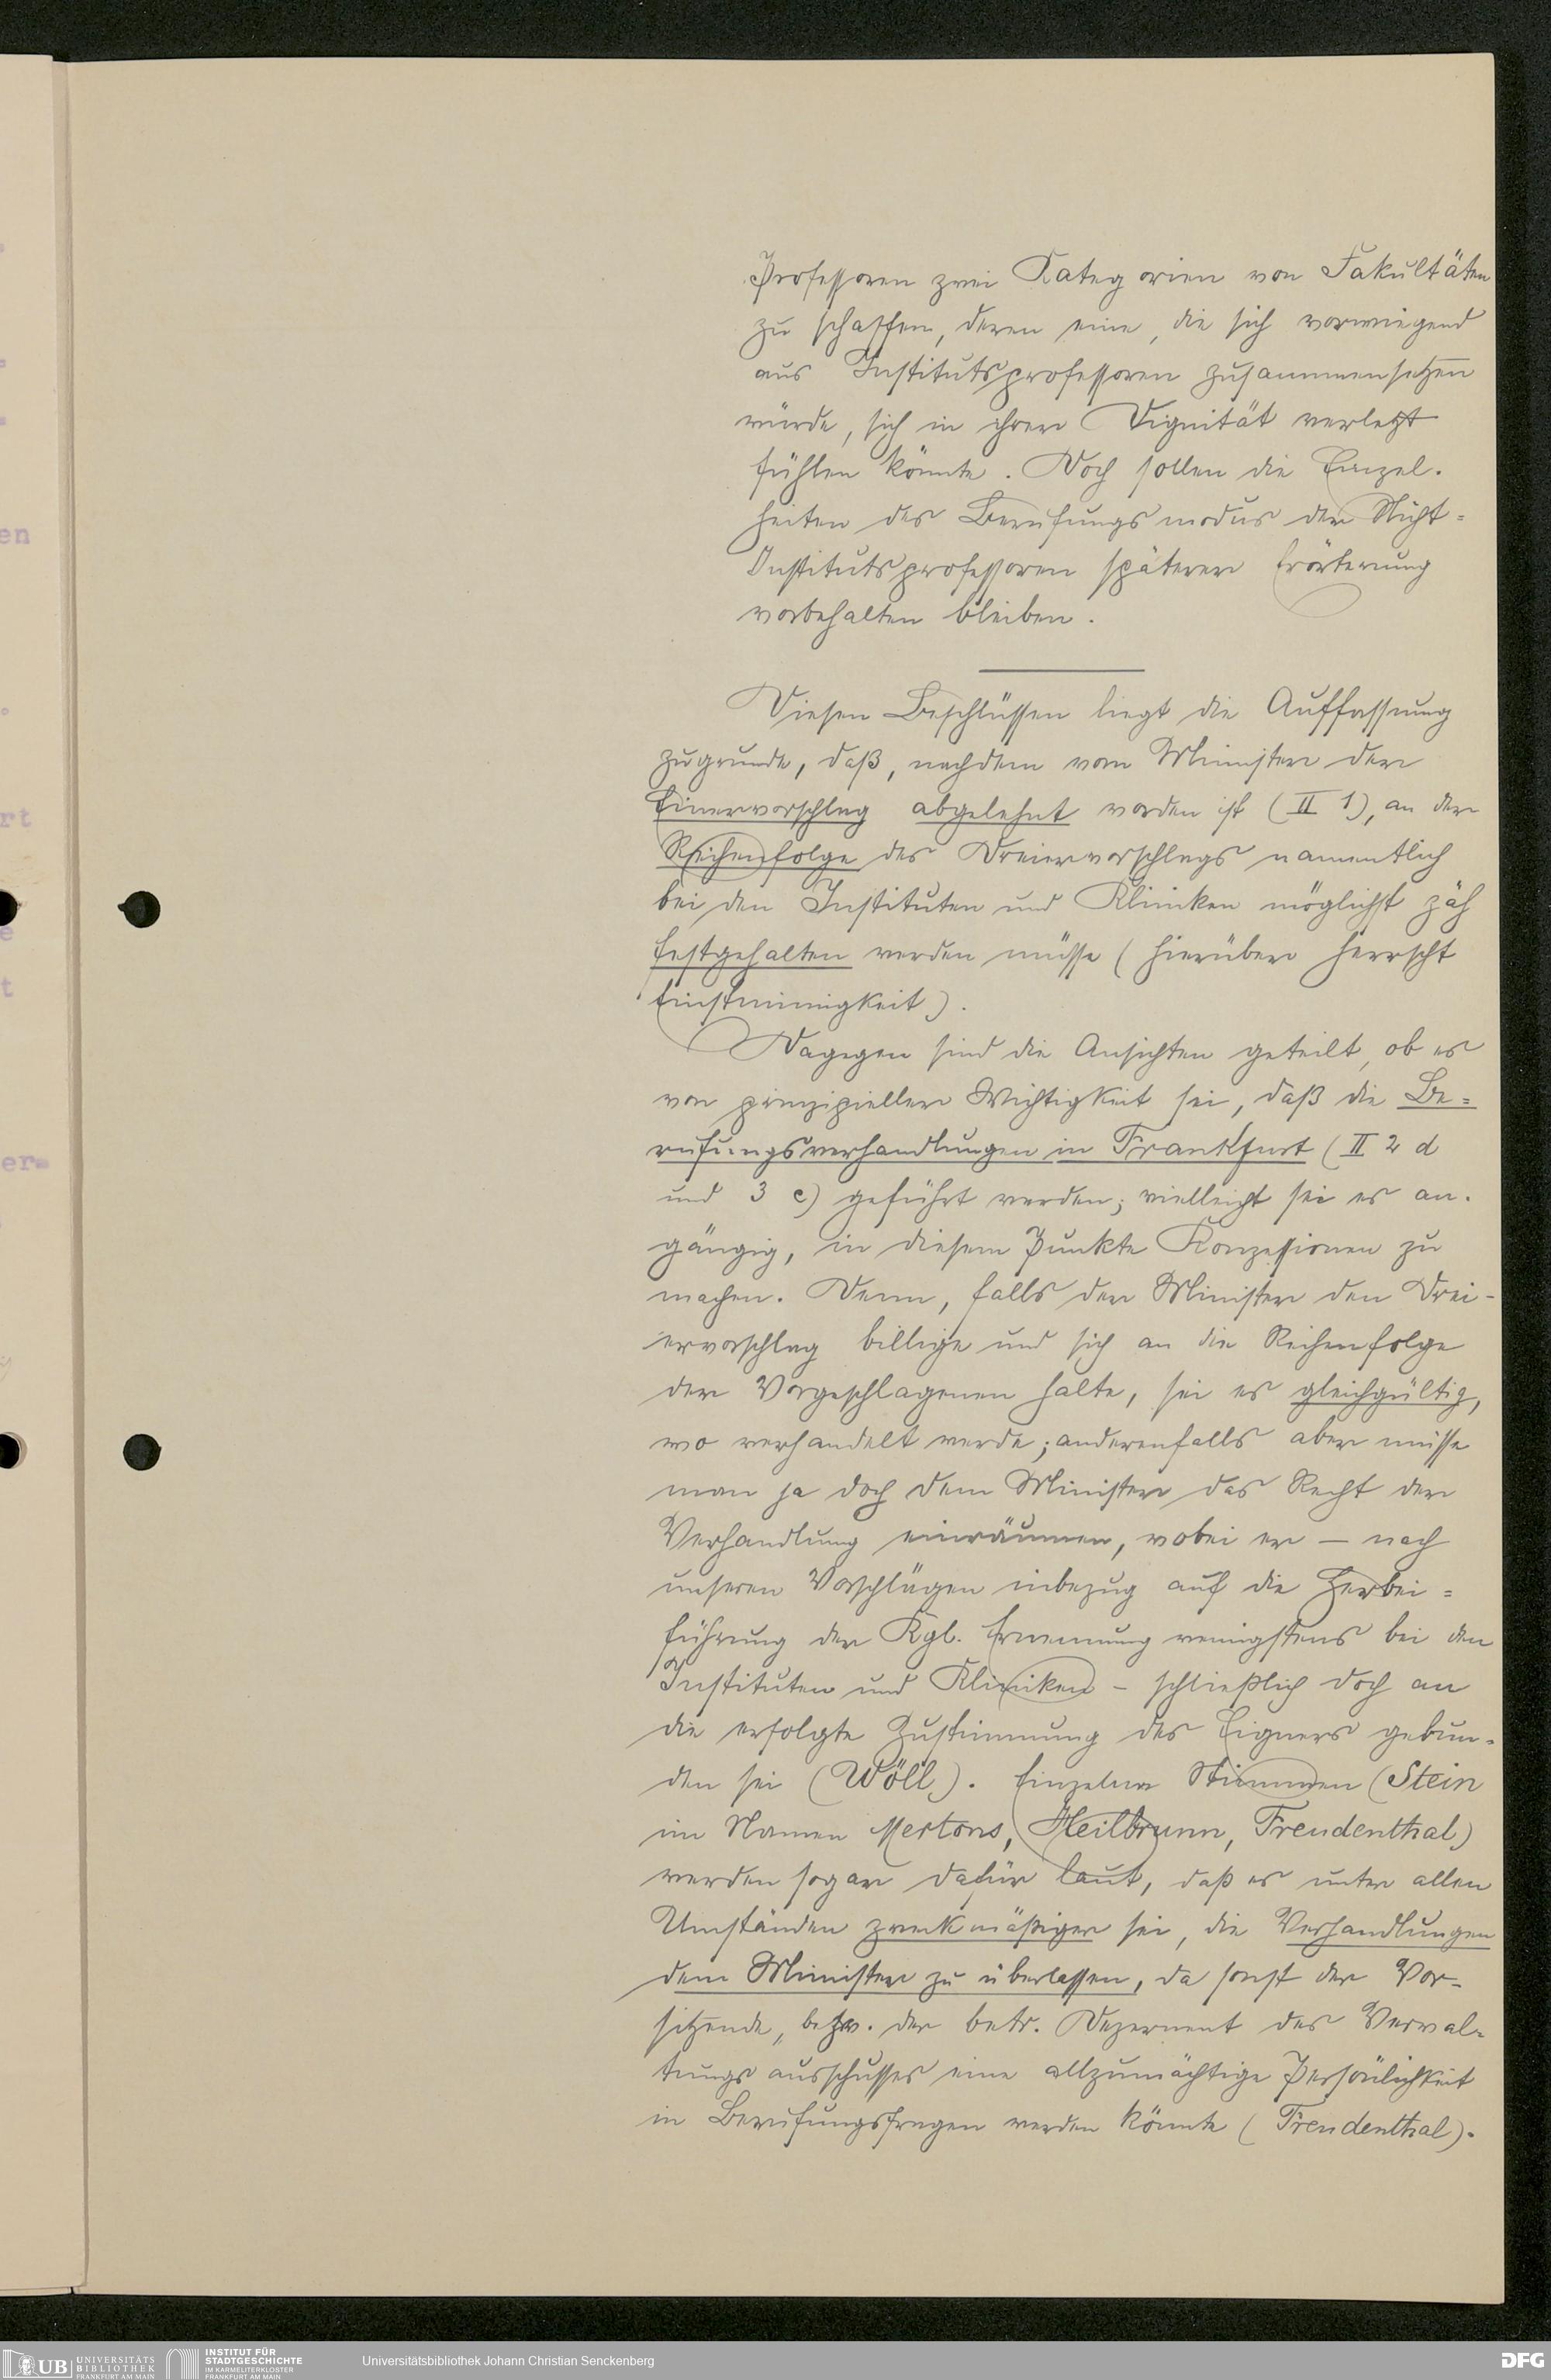 Professoren zwei Kategorien von Fakultäten
zu schaffen, deren eine, die sich vorwiegend
aus Institutsprofessoren zusammensetzen
würde, sich in ihrer Dignität verletzt
fühlen könnte. Doch sollen die Einzel-
heiten des Berufungsmodus der Nicht-
Institutsprofessoren späterer Erörterung
vorbehalten bleiben.
Diesen Beschlüssen liegt die Auffassung
zugrunde, daß, nachdem vom Minister der
Einervorschlag abgelehnt worden ist (II 1), an der
Reihenfolge des Dreiervorschlags namentlich
bei den Instituten und Kliniken möglichst zäh
festgehalten werden müsse (hierüber herrscht
Einstimmigkeit).
Dagegen sind die Ansichten geteilt, ob es
von prinzipieller Wichtigkeit sei, daß die Be=
rufungsverhandlungen in Frankfurt (II 2 d
und 3 c) geführt werden; vielleicht sei es an-
gängig, in diesem Punkte Konzessionen zu
machen. Denn, falls der Minister den Drei-
ervorschlag billige und sich an die Reihenfolge
der Vorgeschlagenen halte, sei es gleichgültig,
wo verhandelt werde; anderenfalls aber müsse
man ja doch dem Minister das Recht der
Verhandlung einräumen, wobei er — nach
unseren Vorschlägen inbezug auf die Herbei=
führung der Kgl. Ernennung wenigstens bei den
Instituten und Kliniken – schließlich doch an
die erfolgte Zustimmung des Eigners gebun-
den sei (Wöll). Einzelne Stimmen (Stein
im Namen Mertons, Heilbrunn, Freudenthal)
werden sogar dafür laut, daß es unter allen
Umständen zweckmäßiger sei, die Verhandlungen
dem Minister zu überlassen, da sonst der Vor-
sitzende, bezw. der betr. Dezernent des Verwal-
tungsausschusses eine allzumächtige Persönlichkeit
in Berufungsfragen werden könnte (Freudenthal).
en
rt
e
t
er-
UB UNIVERSITÄTS
BIBLIOTHEK
FRANKFURT AM MAIN
INSTITUT FÜR
STADTGESCHICHTE
IM KARMELITERKLOSTER
FRANKFURT AM MAIN
Universitätsbibliothek Johann Christian Senckenberg
DFG